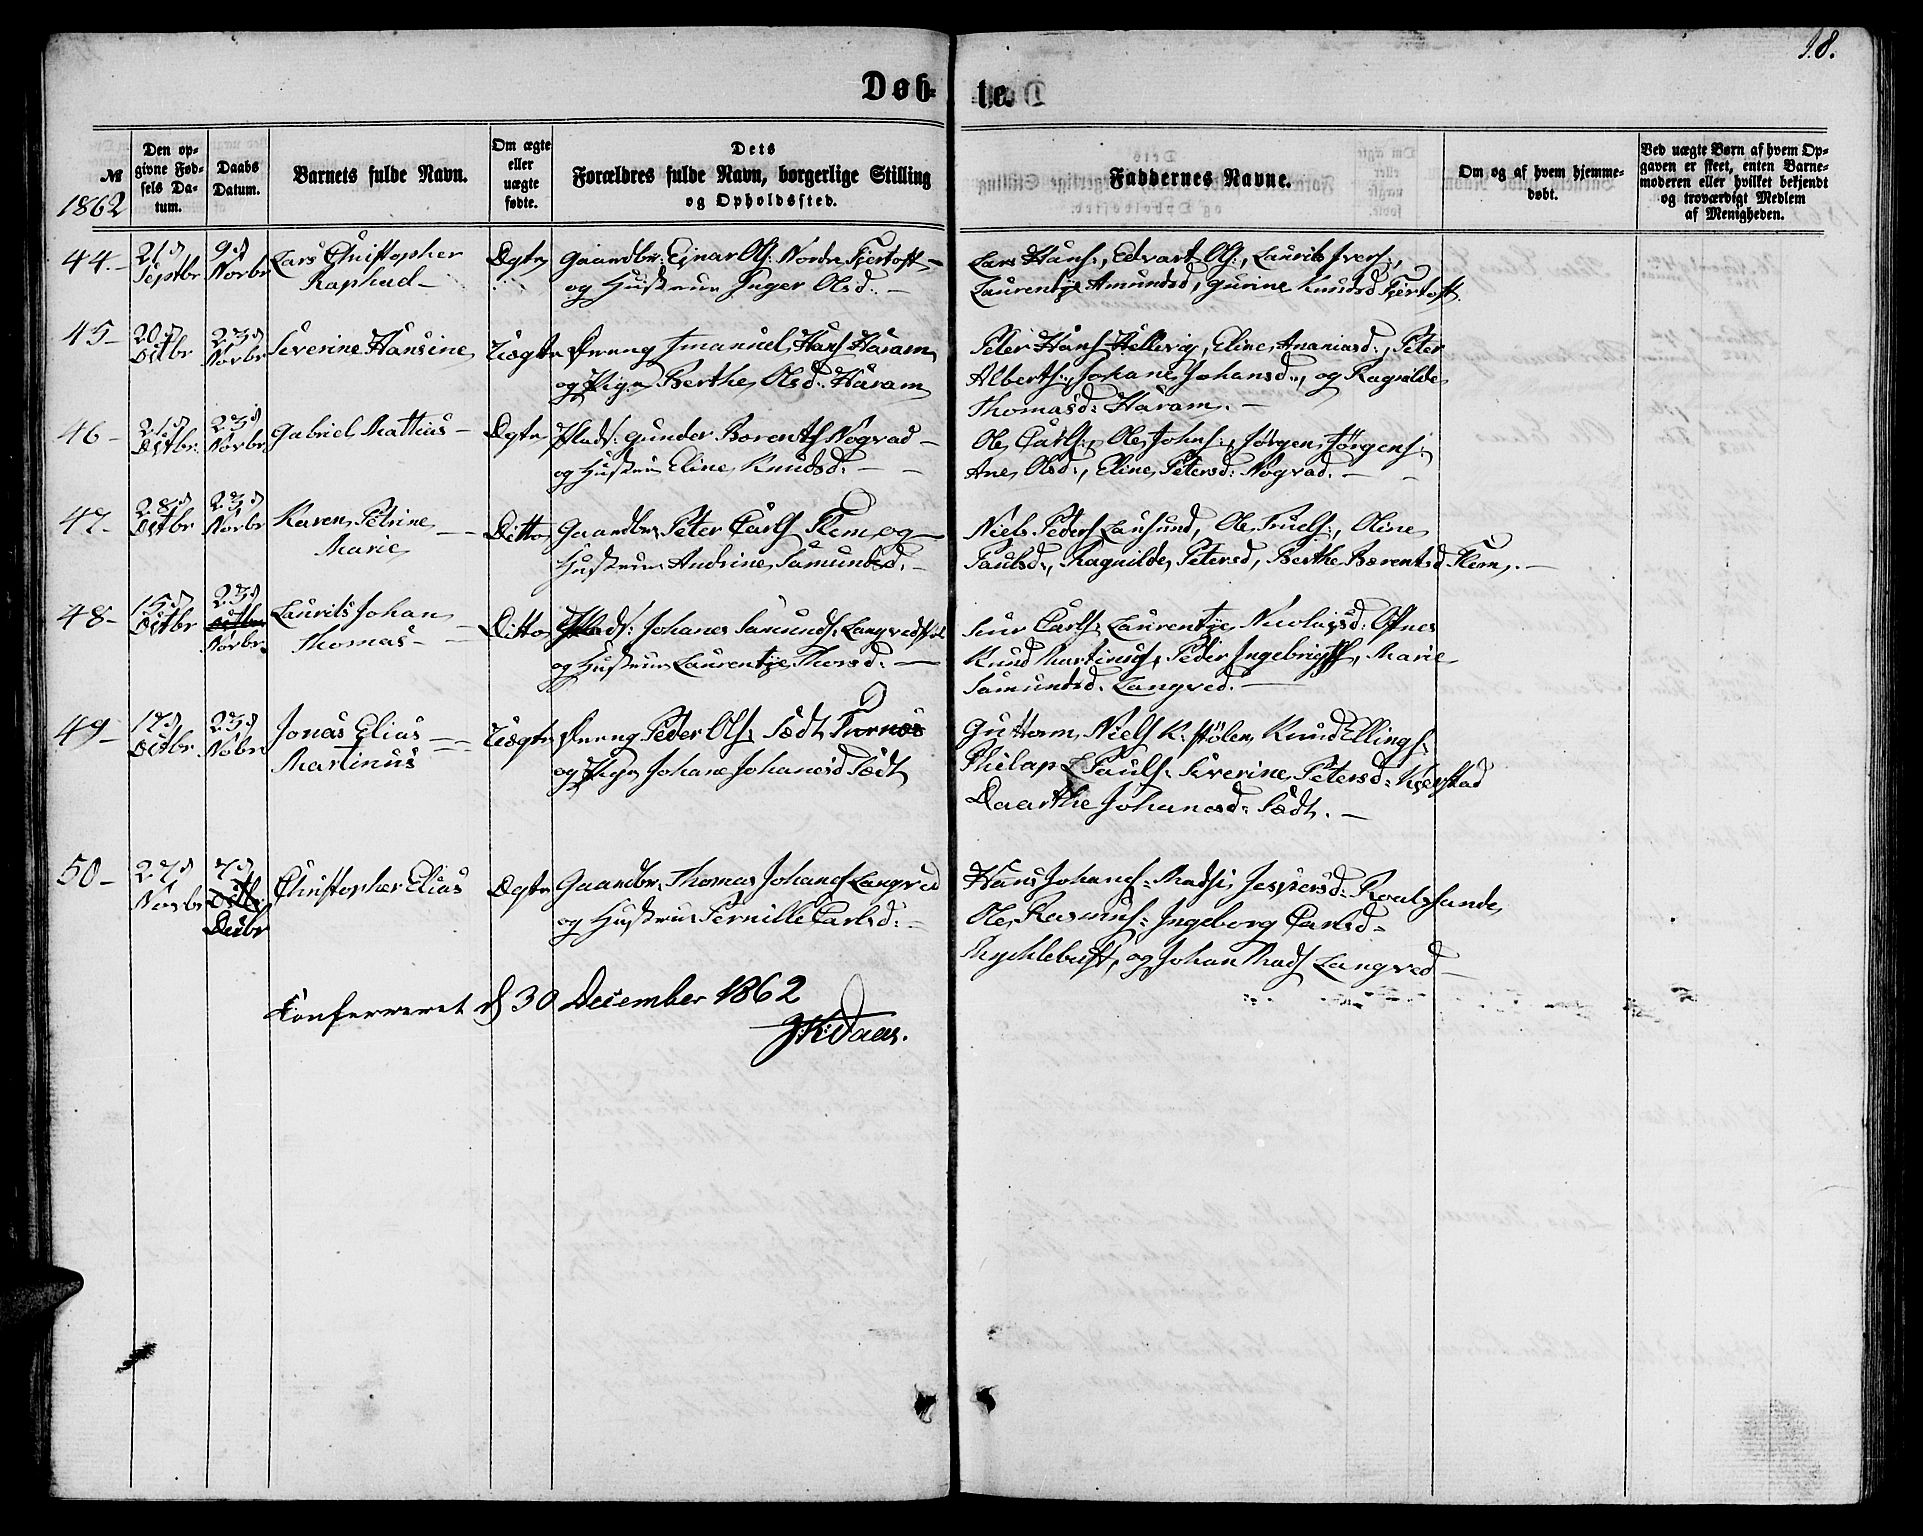 18.
Døb-
te.
№
1862
Den op-
givne Fød-
sels Da-
tum.
Daabs
Datum.
Barnets fulde Navn.
Om ægte
eller
uægte
fødte.
Dets
Forældres fulde Navn, borgerlige Stilling
og Opholdssted.
Faddernes Navne.
Om og af hvem hjemme-
døbt.
Ved uægte Børn af hvem Op-
gaven er skeet, enten Barne-
moderen eller hvilket bekjendt
og troværdigt Medlem
af Menigheden.
44.-
21d
Septbr
9d
Novbr
Lars Christopher
Raphael-
Ægte
Gaardbr: Ejnar Ols: Nordre Fjertoft -
og Hustrue Inger Olsd: -
Lars Hans:, Edvart Ols:, Laurits Ivers:,
Laurentze Amundsd, Gurine Knudsd Fjertoft
45-
20d
Octbr
23d
Novbr
Severine Hansine
Uægte
Dreng Imanuel Hans Haram
og Pige Berthe Olsd: Haram
Peter Hans Hellevig, Eline Ananiasd:, Peter
Alberts:, Johane Johansd:, og Ragnilde
Thomasd: Haram. -
46-
21d
Octbr
23d
Novbr
Gabriel Mathias -
Ægte
Plads: Gunder Barents Nogvad -
og Hustrue Eline Knudsd: -
Ole Carls:, Ole Johns:, Jørgen Jørgens:
Ane Olsd:, Eline Petersd: Nogvad. -
47-
28d
Octbr
23d
Novbr
Karen Petrine
Marie
Ditto
Gaardbr Peter Carls Flem og
Hustrue Andrine Samundsd. -
Niels Peders Lausund, Ole Truels:, Oline
Paulsd:, Ragnilde Petersd, Berthe Barentsd Flem. -
48-
15d
Octbr
23d
Octbr
Novbr
Laurits Johan
Thomas -
Ditto
Plads: Johanes Samunds: Langvedst
og Hustrue Laurentze Thorsd: -
Carls: Laurentze Nicolaisd: Ostnes
Knud Martinus, Peder Ingebrigts, Marie
Samundsd: Langved. -
49-
17d
Octbr
23d
Nobr
Jonas Elias -
Martinus
Uægte
Dreng Peder Ols:
og Pige Johane Johanesd
Guttorm Niels Kjerstølen, Knud Ellings:
Philap E Pauls: Siverine Petersd: Kjerstad
Daarthe Johanesd:
50-
27d
Novbr
7d
Octbr
Decbr
Christopher Elias
Ægte
Gaardbr Thomas Johans Langved
og Hustrue Pernille Carlsd: -
Hans Johans: Madsi Jespersd: Roaldsunde
Ole Rasmus: Ingeborg Carlsd:
Mychlebust, og Johan Mads Langved -
Conferreret d 30 December 1862
J:K:Daae.